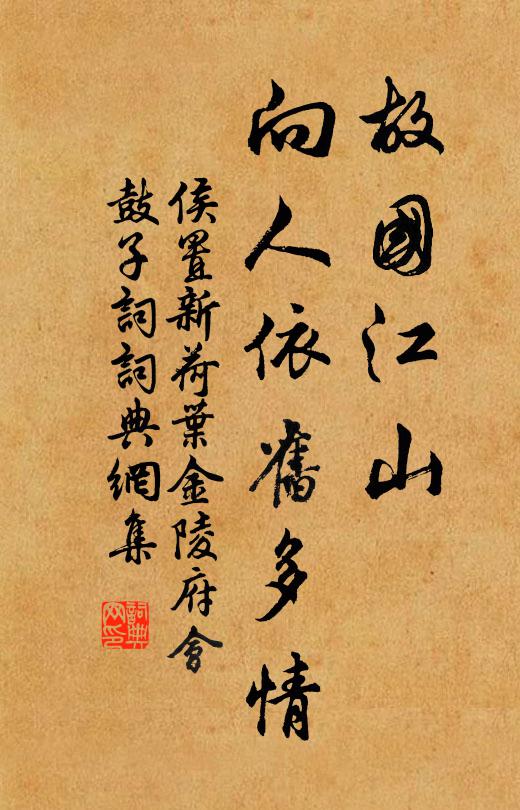 故國江山
向人依舊多情
侯置新荷葉金陵府會
鼓子詞詞典網集
詞典
网印